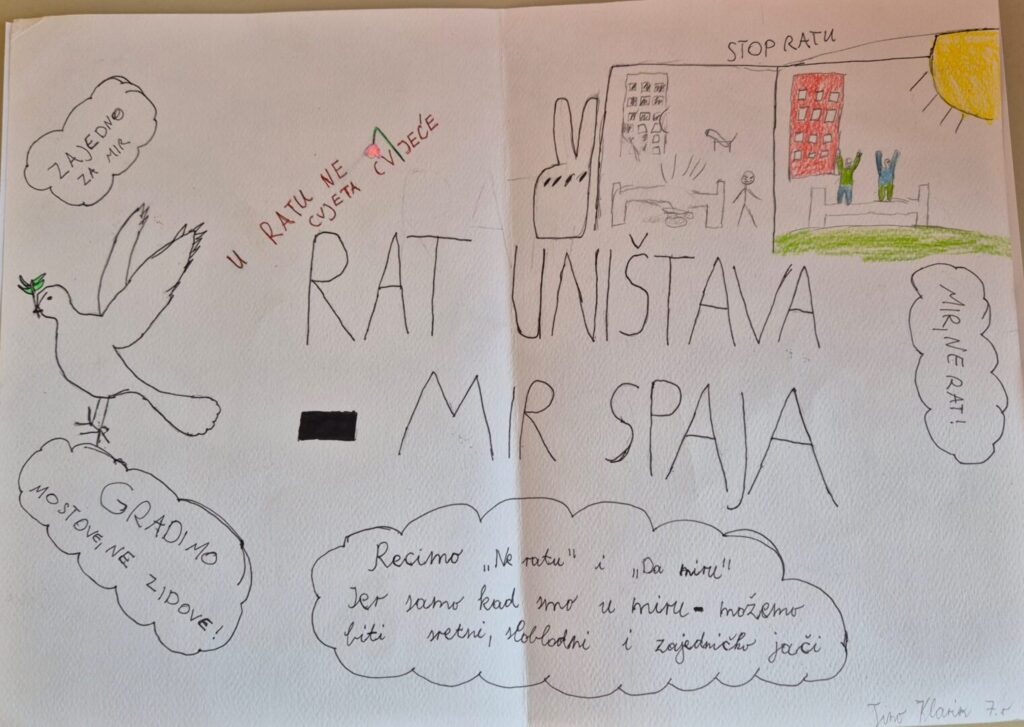 STOP RATU
ZAJEDNO
ZA MIR
U RATU NE
CVJETA CVIJEĆE
RAT UNIŠTAVA
- MIR SPAJA
MIR, NE RAT!
GRADIMO
MOSTOVE, NE ZIDOVE!
Recimo „Ne ratu" i „Da miru"
Jer samo kad smo u miru - možemo
biti sretni, sloblodni i zajedničko jači